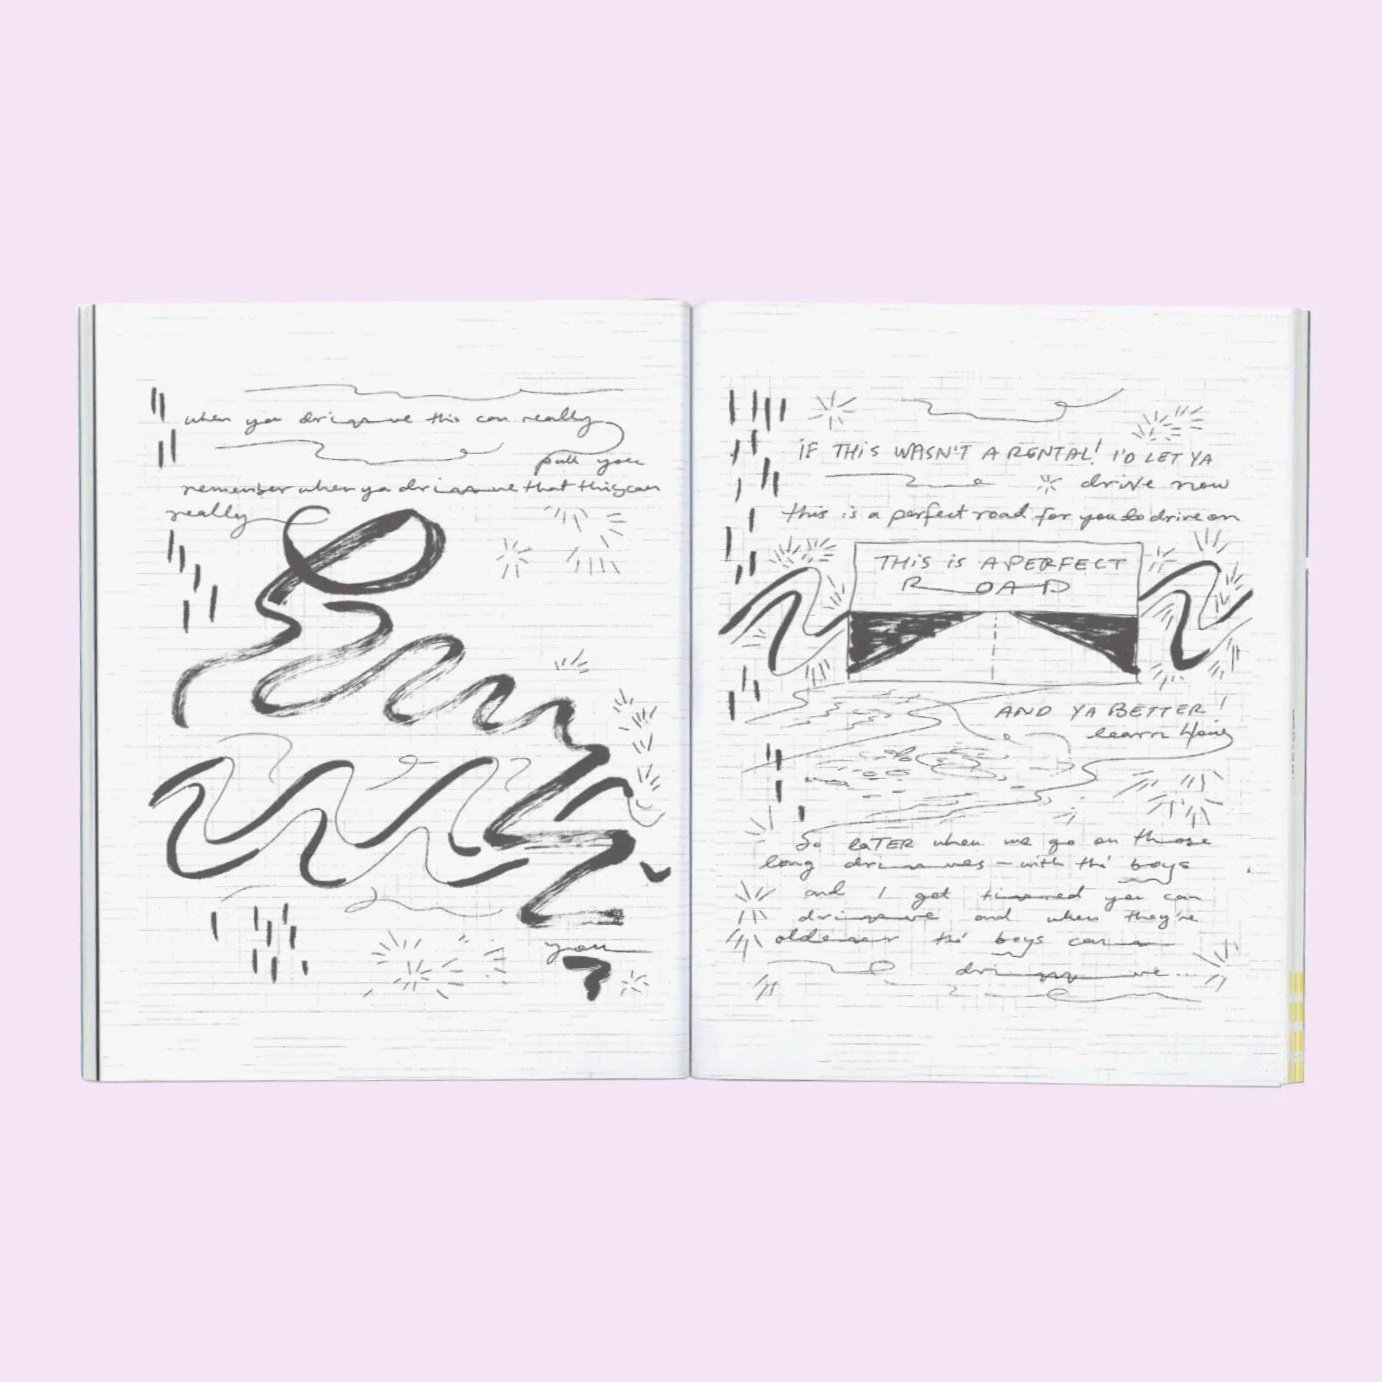 when you driiiiive this can really
pull you
remember when ya driiiiive that this can
really
pull
you
IF THIS WASN'T A RENTAL! I'D LET YA
drive now
this is a perfect road for you to drive on
THIS IS A PERFECT
ROAD
AND YA BETTER!
learn
So LATER when we go on those
long driiives – with thi' boys
and I get tiiired you can
driiiive and when they're
older thi' boys can
driiiive...